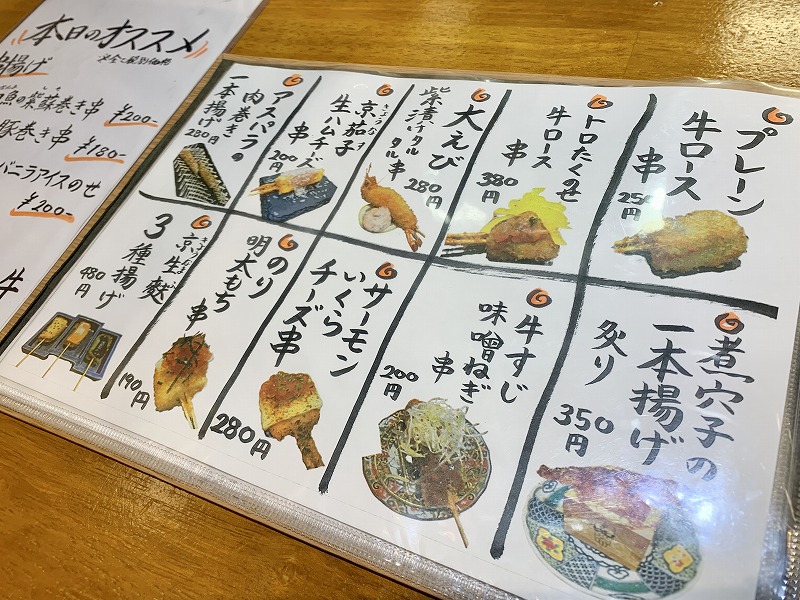 本日のオススメ
揚げ
魚の紫蘇巻き串
¥200-
豚巻き串
¥180-
バニラアイスのせ
¥200-
牛
プレーン
牛ロース
串
250円
トロたくのせ
牛ロース
串
380円
大えび
柴漬けタルタル串
280円
京茄子
きょうなす
生ハムチーズ
串
200円
アスパラの
肉巻き
一本揚げ
280円
煮穴子の
一本揚げ
炙り
350円
牛すじ
味噌ねぎ
串
200円
サーモン
いくら
チーズ串
280円
のり
明太もち
串
190円
京生麩
3種揚げ
480円